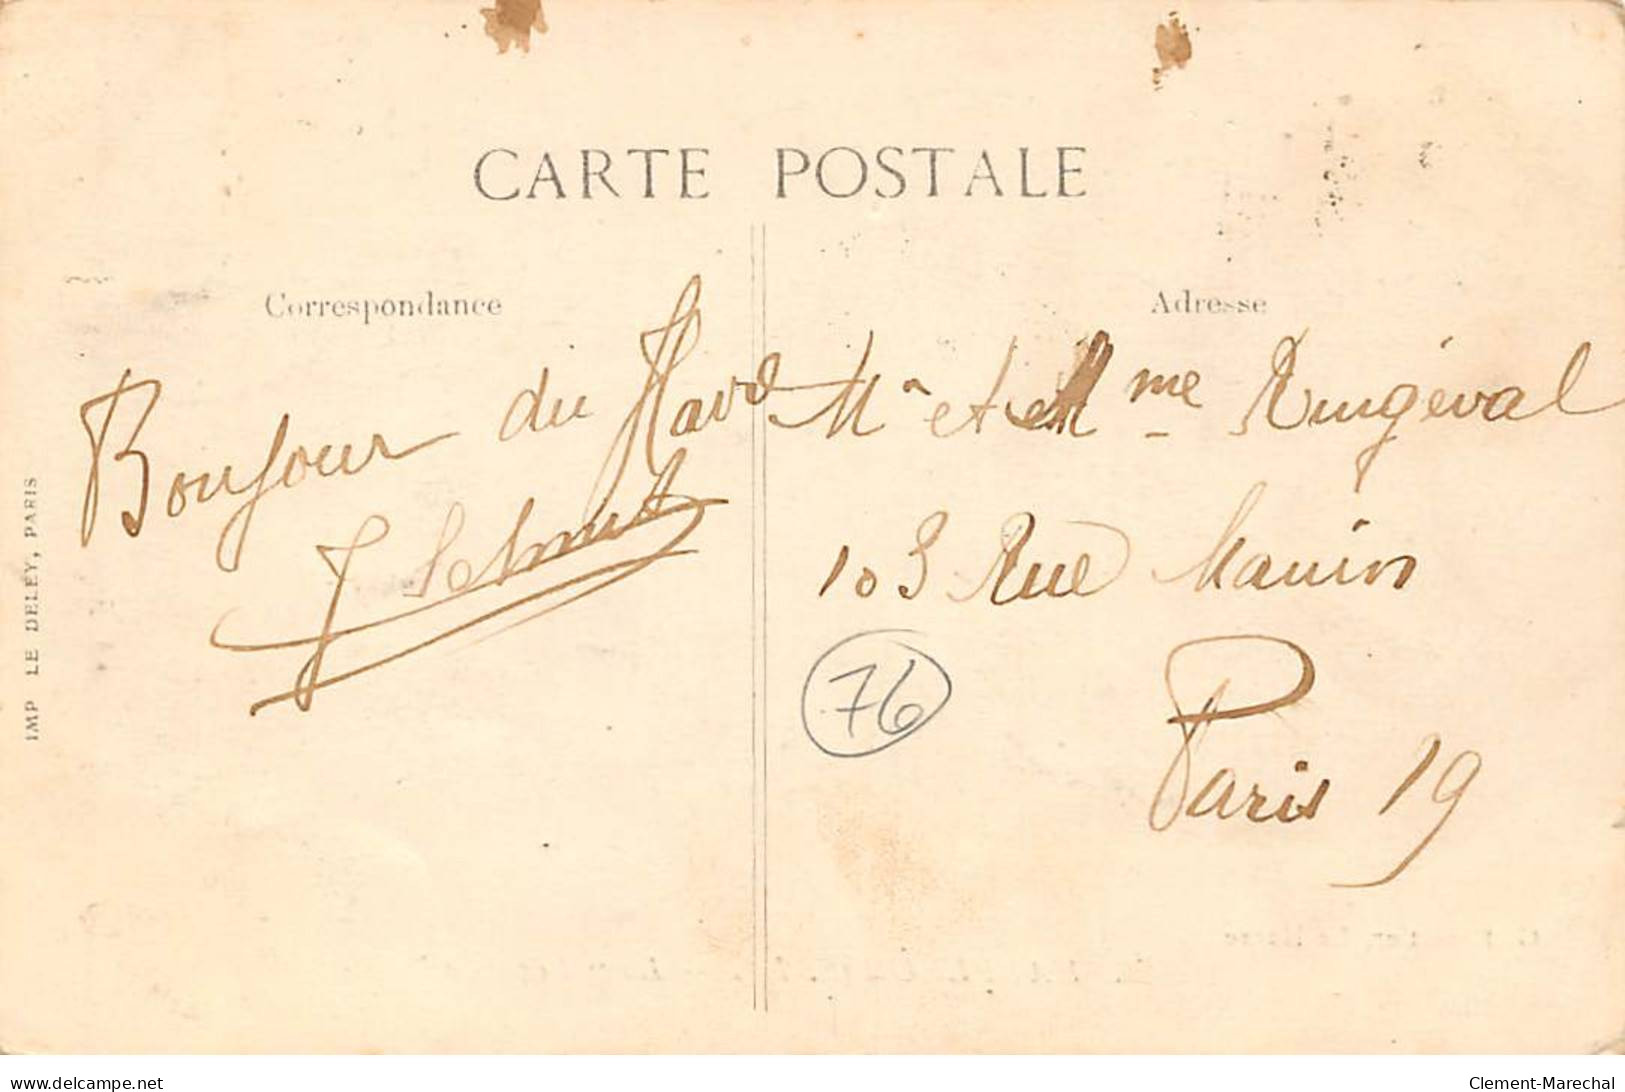 CARTE POSTALE
Correspondance
Bonjour du Havre
J Schmit
Adresse
Mr et Mme Ringeval
103 Rue Manin
Paris 19
76
IMP LE DELEY, PARIS
www.delcampe.net
Clement-Marechal